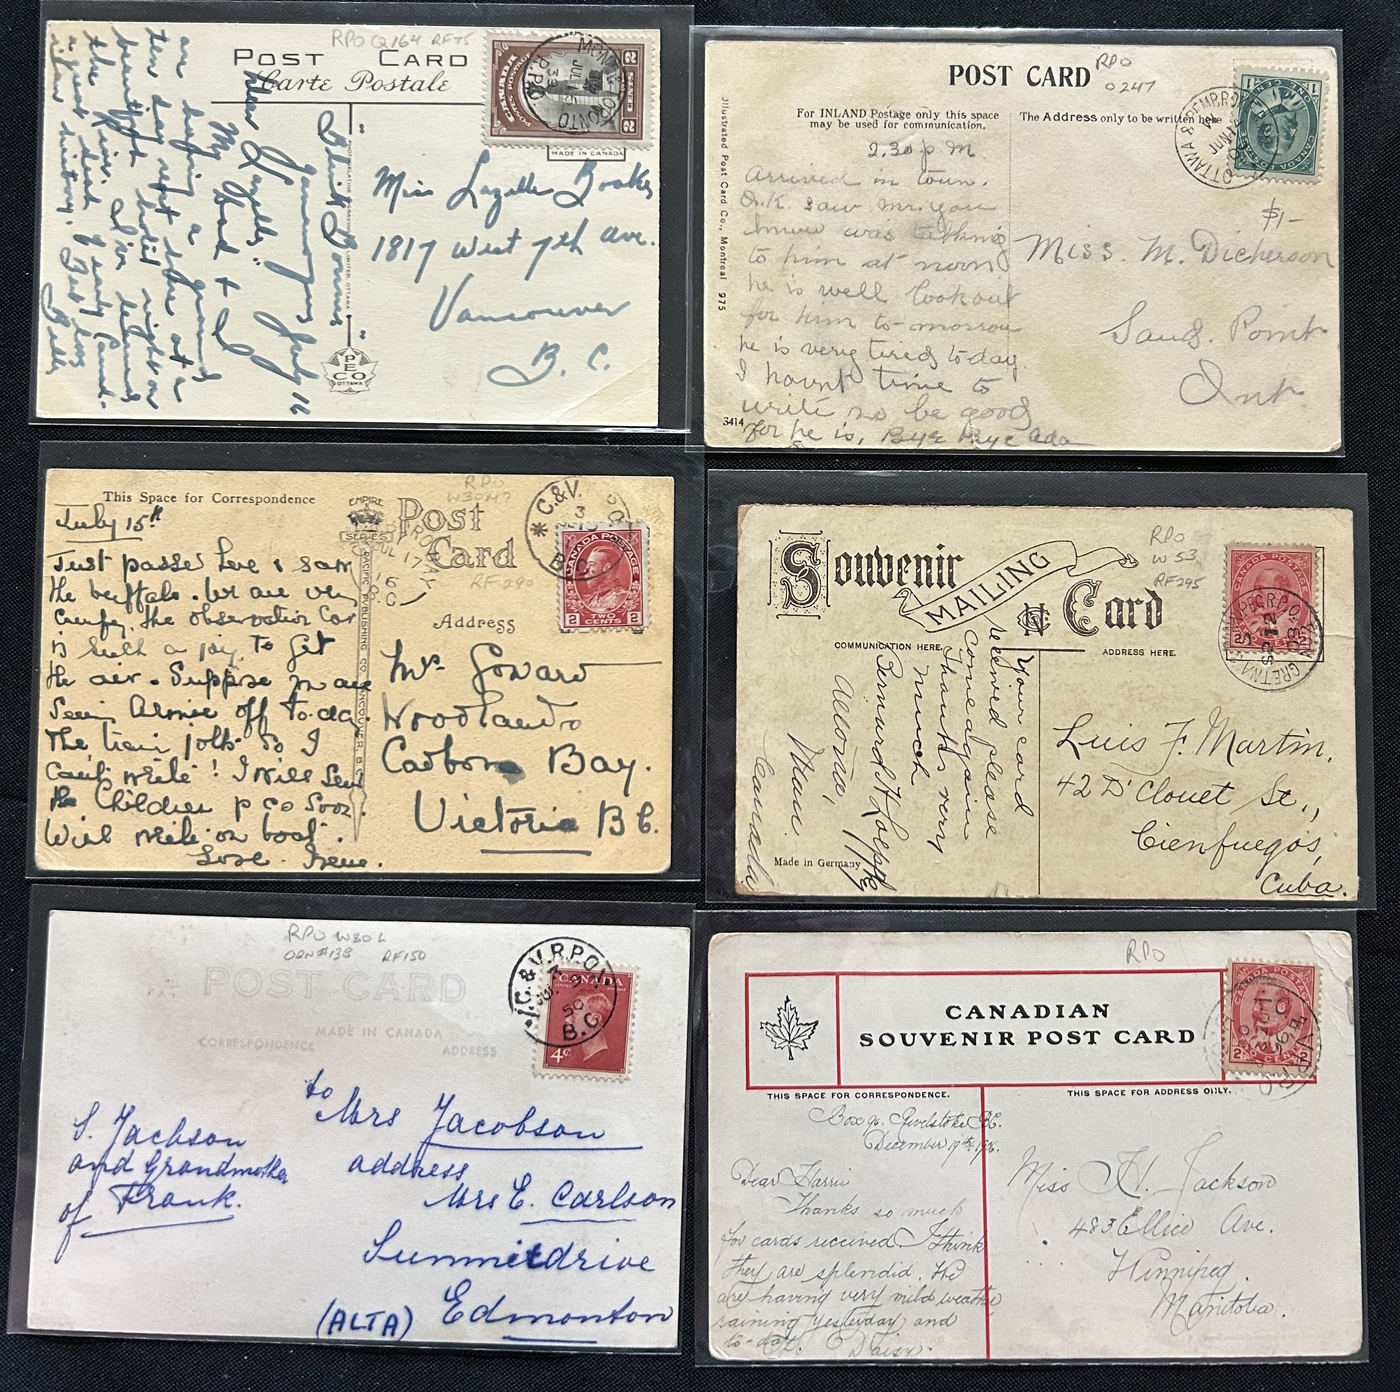 RPO Q164 RF75
POST CARD
Carte Postale
CANADA
POSTES POSTAGE
2 CENTS 2
JUL
39
R.P.O.
MADE IN CANADA
"
Gananoque July 16
Dear Lazelle
My Dad & I
are having a grand
ten day
beautiful hotel right on
the River.
Miss Lazelle
1817 West 7th Ave.
Vancouver
B.C.
PECO
OTTAWA
RPO
0247
POST CARD
For INLAND Postage only this space
may be used for communication.
The Address only to be written here
Illustrated Post Card Co., Montreal 975
OTTAWA & PEMB. R.P.O.
2.30 p M
Arrived in town.
O.K. saw mr. you
know was talking
to him at noon
he is well look out
for him to-morrow
he is very tired to-day
I havnt time to
write so be good
for he is, Bye Bye Ada
3414
$1-
Miss. M. Dickerson
Sand. Point
Ont
RPO
W30M7
RF290
This Space for Correspondence
EMPIRE
SERIES
Post
Card
Address
C.&V.
CANADA POSTAGE
2 TWO CENTS 2
PACIFIC PUBLISHING CO. VANCOUVER, B.C.
July 15th
Just passed here & saw
the buffalo. We are very
comfy, the observation car
is such a joy to get
the air. Suppose you are
Seeing Armie off to-day.
The train jolts so I
can't write! I will send
the Children p co soon
Will write on boat.
Love. Irene.
Mrs Goward
Woodlands
Cadboro Bay.
Victoria B C.
RPO
W53
RF295
Souvenir
MAILING
Card
COMMUNICATION HERE.
ADDRESS HERE.
CANADA POSTAGE
Your card
received please
come again
Thanks very
much
Bernard H
Altona,
Man.
Canada
Made in Germany
Luis F. Martin.
42 D'Clouet St.,
Cienfuegos,
Cuba.
RPO W30L
ORN#138 RF150
POST CARD
MADE IN CANADA
CORRESPONDENCE ADDRESS
C.&V.R.P.O.
50
B.C.
CANADA
4¢
S. Jackson
and Grandmother
of Frank.
to Mrs Jacobson
address
Mrs E. Carlson
Summitdrive
(ALTA) Edmonton
RPO
CANADIAN
SOUVENIR POST CARD
THIS SPACE FOR CORRESPONDENCE.
THIS SPACE FOR ADDRESS ONLY.
Box 92. Revelstoke B.C.
December 19th
Dear Harrie
Thanks so much
for cards received. I think
they are splendid. We
are having very mild weather
raining yesterday and
to-day. Daisy.
Miss H. Jackson
483 Ellice Ave.
Winnipeg.
Manitoba.